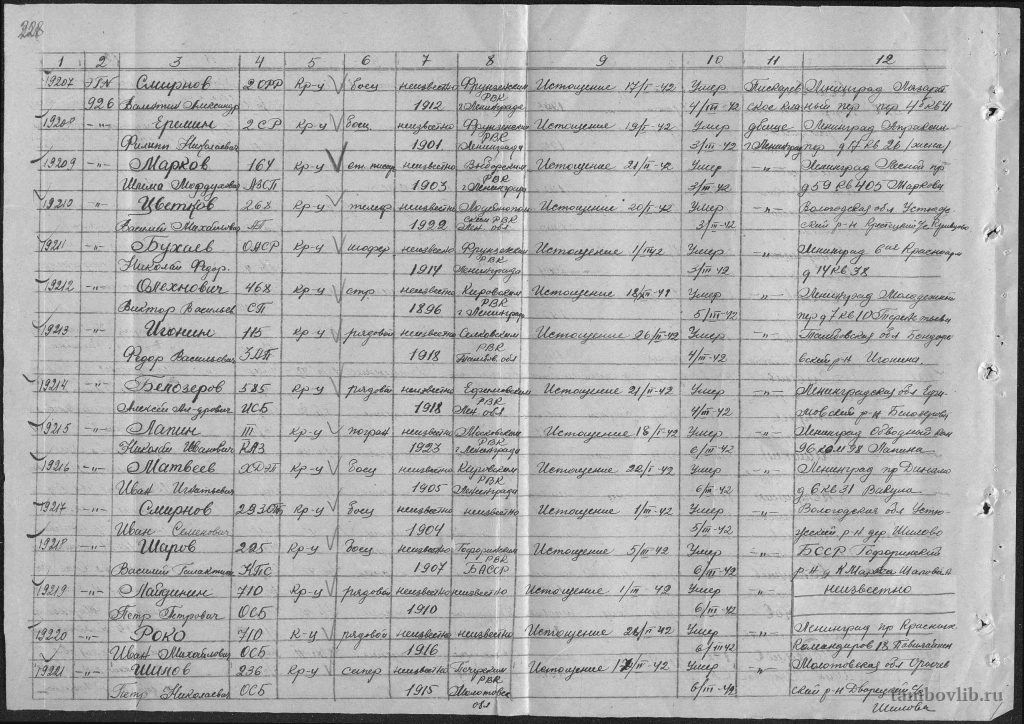 228
1 2 3 4 5 6 7 8 9 10 11 12
19207 ЭГN Смирнов 2 ОРР Кр-ц боец неизвестно Фрунзенским Истощение 17/I-42 Умер Пискарев Ленинград Лазарет
926 Валентин Александр 1912 РВК г Ленинграда 4/III-42 ное пер кв 41
19208 -"- Еремин 2 СР Кр-ц боец неизвестно Фрунзенским Истощение 19/I-42 Умер Ленинград Апраксин
Филипп Николаевич 1901 РВК Ленинграда 3/III-42 г Ленинград пер д 17 кв 26 /жена/
19209 -"- Марков 164 Кр-ц неизвестно Выборгским Истощение 21/II-42 Умер -"- Ленинград Лесной пр
Мордухов АЗСП 1903 РВК г Ленинграда 3/III-42 д 59 кв 405 Маркова
19210 -"- Цветков 268 Кр-ц телеф неизвестно Истощение 20/II-42 Умер -"- Вологодская обл
Василий Михайлович АП 1922 ским РВК Лен. обл 3/III-42 ский р-н
19211 -"- Бухаев ОАСР Кр-ц шофер неизвестно Фрунзенским Истощение 1/III 42 Умер -"- Ленинград 6ая Красноарм
Николай Федор. 1914 РВК Ленинграда 3/III-42 д 14 кв 38
19212 -"- Олехнович 468 Кр-ц стр неизвестно Кировским Истощение Умер -"- Ленинград
Виктор Васильев СП 1896 РВК г Ленинграда 5/III-42 пер д 7 кв 10
19213 -"- Игонин 115 Кр-ц рядовой неизвестно Истощение 26/II-42 Умер -"- Тамбовская обл Бондар
Федор Васильевич ЗАП 1918 РВК Тамбов. обл 4/III-42 вский р-н Игонина
19214 -"- Белозеров 585 Кр-ц рядовой неизвестно Ефимовским Истощение 21/II-42 Умер -"- Ленинградская обл Ефи
Алексей Ал-дрович ИСБ 1918 РВК Лен. обл 4/III-42 мовский р-н Белозерова
19215 -"- Лапин III Кр-ц погран неизвестно Московским Истощение 18/I-42 Умер -"- Ленинград Обводный кан
Николай Иванович КАЗ 1923 РВК г Ленинграда 6/III-42 96 ком 98 Лапина
19216 -"- Матвеев ХДЭП Кр-ц боец неизвестно Кировским Истощение 22/I-42 Умер -"- Ленинград пр Динамо
Иван Игнатьевич 1905 РВК Ленинграда 6/III-42 д 6 кв 31 Вакула
19217 -"- Смирнов Кр-ц боец неизвестно неизвестно Истощение 1/III-42 Умер -"- Вологодская обл Устю-
Иван Семенович 1904 5/III-42 р-н дер. Шилово
19218 -"- Шаров 225 Кр-ц боец неизвестно Истощение 5/III-42 Умер -"- БССР
Василий КПС 1907 РВК БАССР 6/III-42 р-н д К Маркса Шарова А
19219 -"- Лабдинин 710 Кр-ц рядовой неизвестно неизвестно Истощение 1/III-42 Умер -"- неизвестно
Петр Петрович ОСБ 1910 6/III-42
19220 -"- Роко 710 К-ц рядовой неизвестно неизвестно Истощение 26/II-42 Умер -"- Ленинград пр Красных
Иван Михайлович ОСБ 1916 6/III 42 Командиров 18
19221 -"- Шилов 236 Кр-ц сапер неизвестно Истощение Умер -"- Молотовская обл
Петр Николаевич ОСБ 1915 РВК Молотовск обл 6/III-42 ский р-н
Шилова
tambovlib.ru